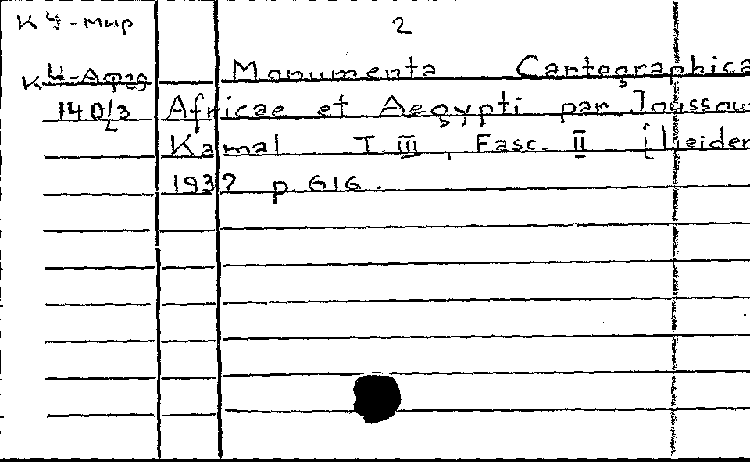 К 4-мир
2
К 4-Афр
140/3
Monumenta Cartographica
Africae et Aegypti par Joussou
Kamal T. III, Fasc. II [Leiden
193? p. 616.